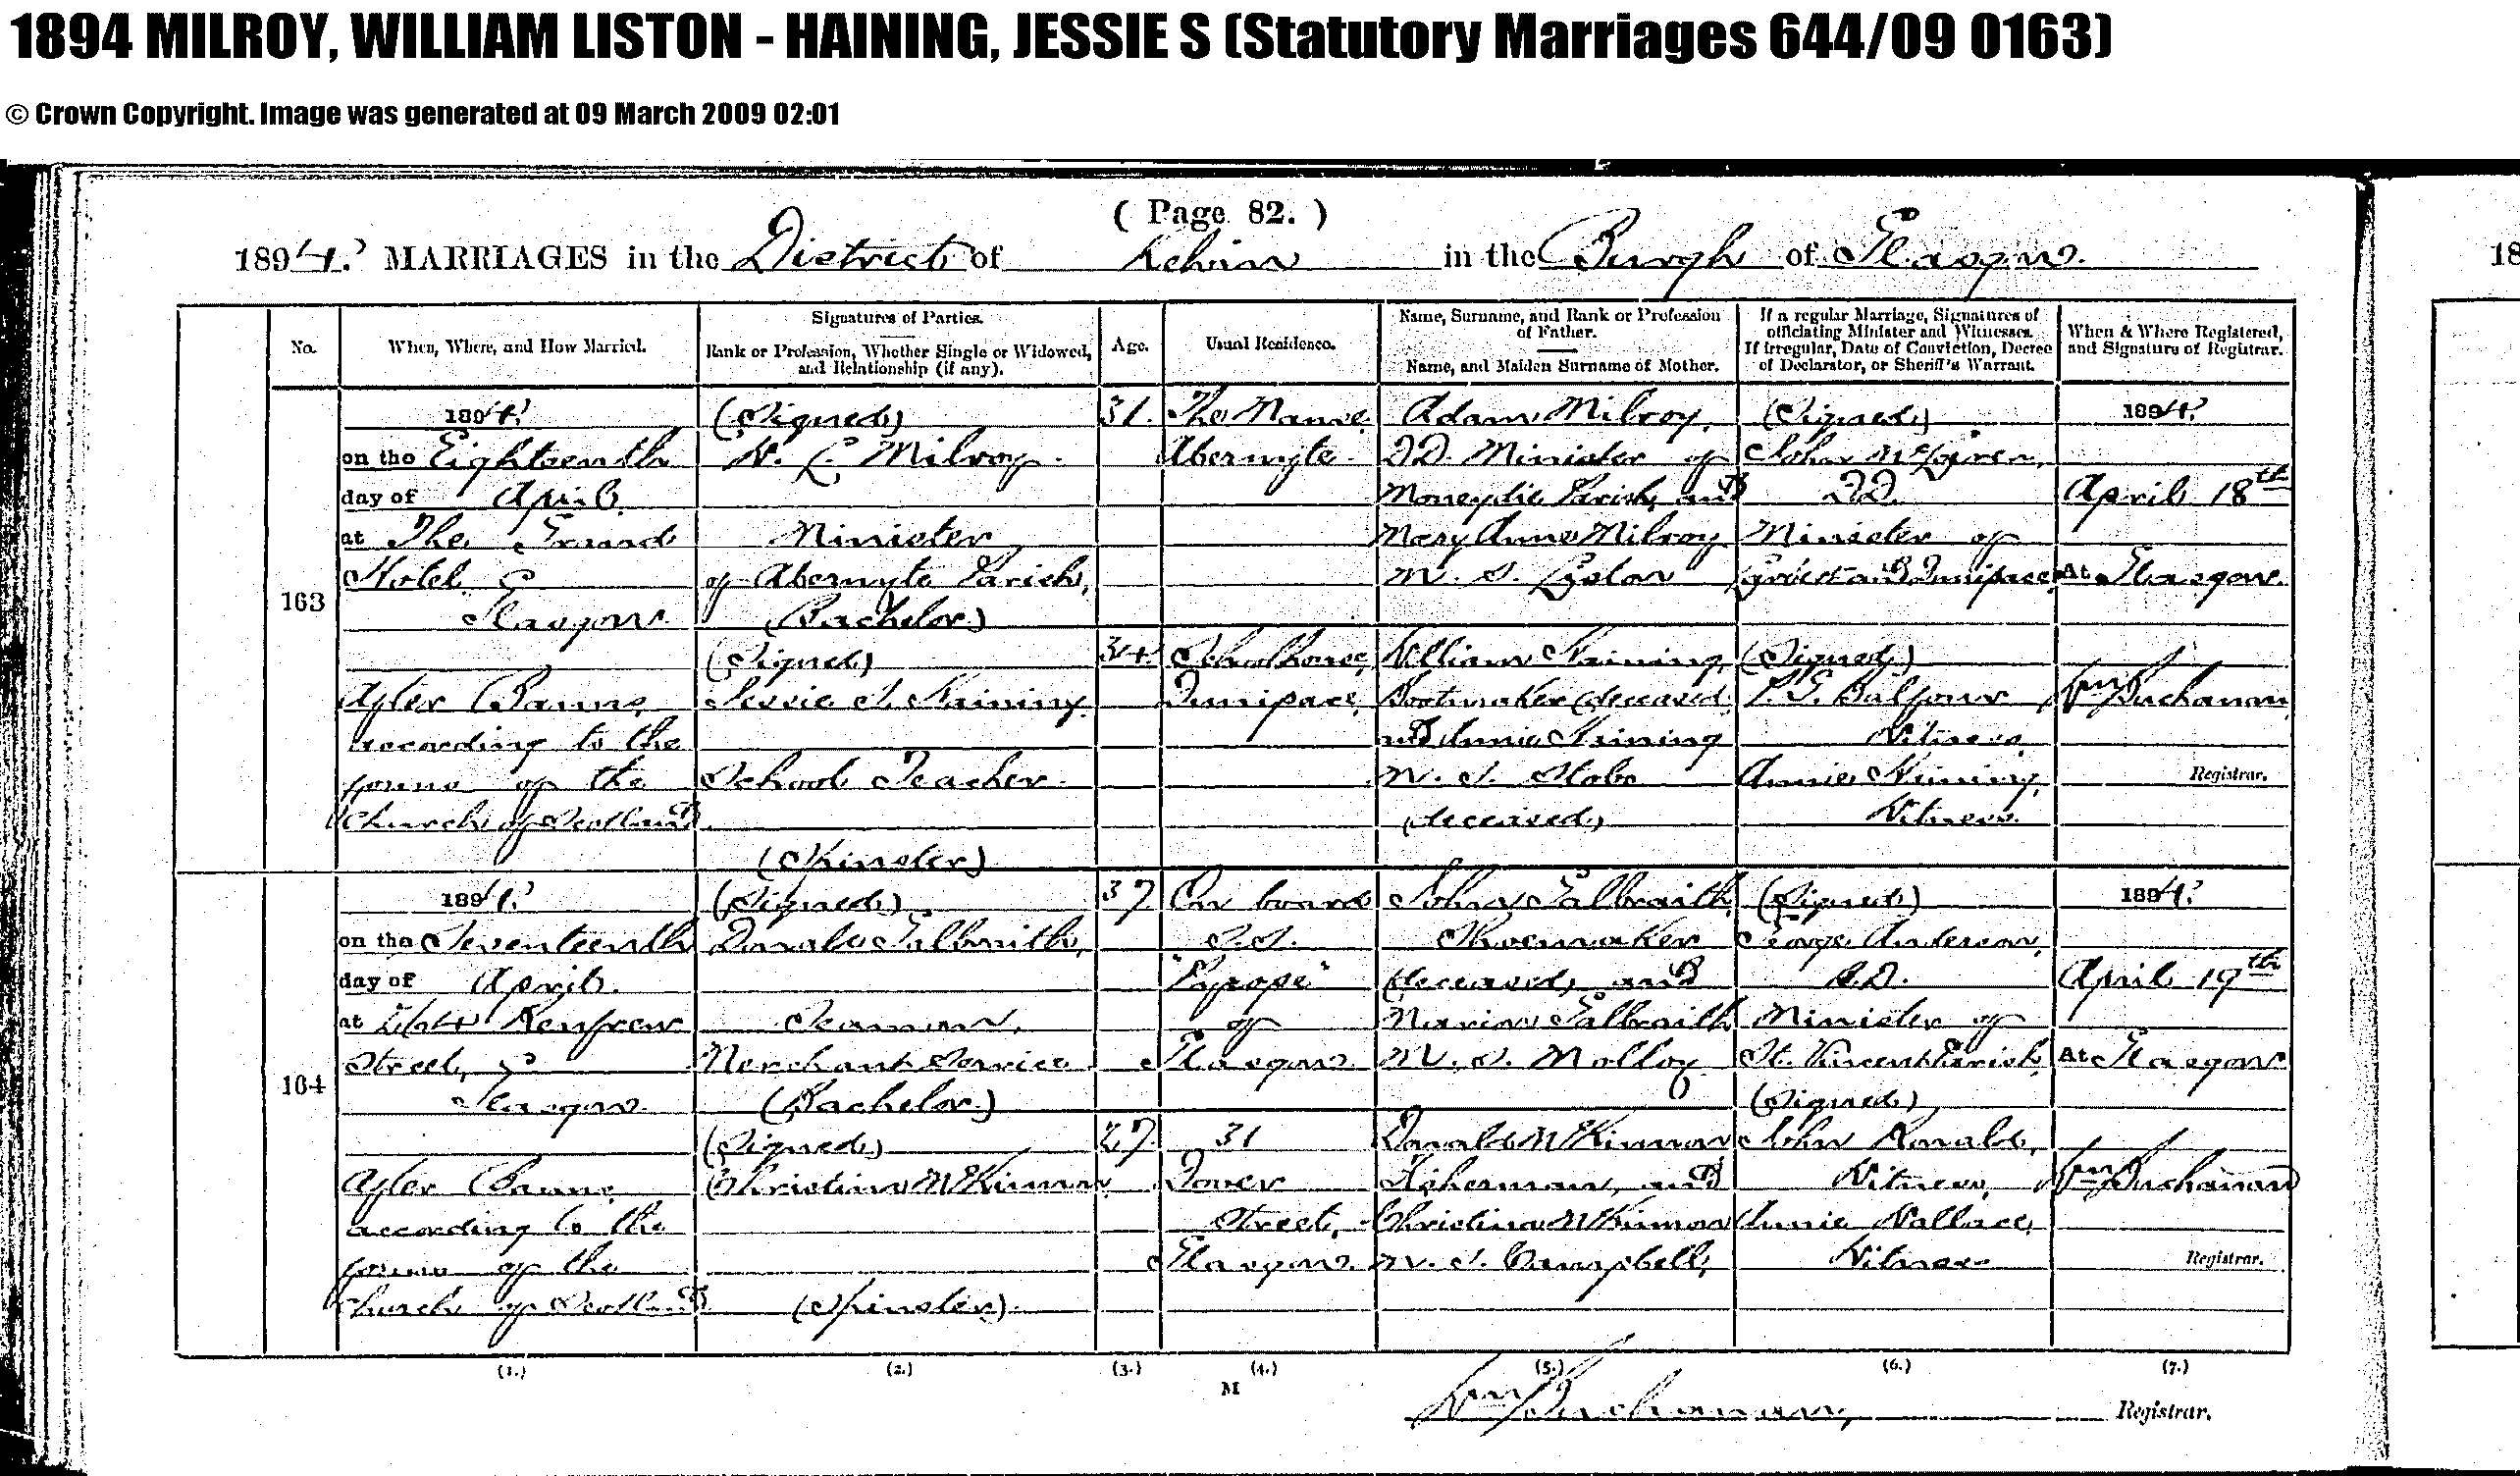 1894 MILROY, WILLIAM LISTON - HAINING, JESSIE S (Statutory Marriages 644/09 0163)
© Crown Copyright. Image was generated at 09 March 2009 02:01
( Page 82. )
1894. MARRIAGES in the District of Kelvin in the Burgh of Glasgow.
18
No.
When, Where, and How Married.
Signatures of Parties.
Rank or Profession, Whether Single or Widowed,
and Relationship (if any).
Age.
Usual Residence.
Name, Surname, and Rank or Profession
of Father.
Name, and Maiden Surname of Mother.
If a regular Marriage, Signatures of
officiating Minister and Witnesses.
If irregular, Date of Conviction, Decree
of Declarator, or Sheriff's Warrant.
When & Where Registered,
and Signature of Registrar.
163
1894.
on the Eighteenth
day of April
at The Grand
Hotel
Glasgow.
After Banns,
according to the
forms of the
Church of Scotland.
(Signed)
W. L. Milroy.
Minister
of Abernyte Parish,
(Bachelor)
(Signed)
Jessie S. Haining.
School Teacher
(Spinster)
31.
34.
The Manse,
Abernyte.
Schoolhouse,
Dunipace,
Adam Milroy,
D.D. Minister of
Moneydie Parish, and
Mary Anne Milroy
M. S. Liston
William Haining,
Bootmaker (deceased)
and Annie Haining
M. S. Stobo
(deceased)
(Signed)
John
D.D.
Minister of
Dunipace
(Signed)
Balfour
Witness.
Annie Haining,
Witness.
1894.
April 18th
At Glasgow.
Wm Buchanan
Registrar.
164
1894.
on the Seventeenth
day of April.
at Renfrew
Street,
Glasgow.
After Banns,
according to the
forms of the
Church of Scotland
(Signed)
Donald Galbraith,
Seaman,
Merchant Service
(Bachelor)
(Signed)
Christina McKinnon
(Spinster)
37
27.
On board
S.S.
"Europe"
of
Glasgow.
31
Dover
Street,
Glasgow.
John Galbraith,
Shoemaker
(deceased), and
Galbraith
M. S. Molloy
Donald McKinnon
Fisherman, and
Christina McKinnon
M. S. Campbell,
(Signed)
George Anderson,
B.D.
Minister of
St. Vincent Parish.
(Signed)
John Ronald,
Witness,
Annie Wallace,
Witness
1894.
April 19th
At Glasgow
Wm Buchanan
Registrar.
(1.) (2.) (3.) (4.) (5.) (6.) (7.)
M
Wm Buchanan, Registrar.